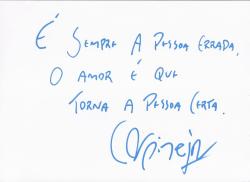 É SEMPRE A PESSOA ERRADA.
O AMOR É QUE
TORNA A PESSOA CERTA.